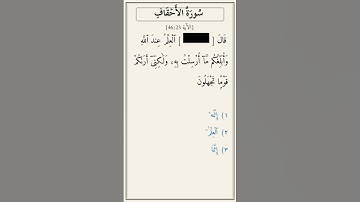 سُورَةُ الأَحْقَافِ
[الآية 46:23]
قَالَ [ ] ٱلْعِلْمُ عِندَ ٱللَّهِ
وَأُبَلِّغُكُم مَّآ أُرْسِلْتُ بِهِۦ وَلَٰكِنِّىٓ أَرَىٰكُمْ
قَوْمًا تَجْهَلُونَ
١) إِنَّهُۥ
٢) ٱلْعِلْمُ
٣) إِنَّمَا